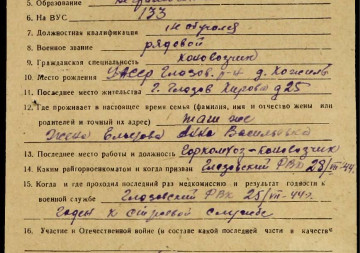 5. Образование
6. На ВУС 133
7. Должностная квалификация не обучался
8. Военное звание рядовой
9. Гражданская специальность коновозчик
10. Место рождения УАССР Глазов. р-н д. Кожиль
11. Последнее место жительства г. Глазов Кирова д 25
12. Где проживает в настоящее время семья (фамилия, имя и отчество жены или
родителей и точный их адрес) там же
Жена Анна Васильевна
13. Последнее место работы и должность Горкомхоз-коновозчик
14. Каким райгорвоенкоматом и когда призван Глазовский РВК 25/III-44
15. Когда и где проходил последний раз медкомиссию и результат годности к
военной службе Глазовский РВК 25/III-44г.
Годен к строевой службе
16. Участие в Отечественной войне (в составе какой последней части в качестве